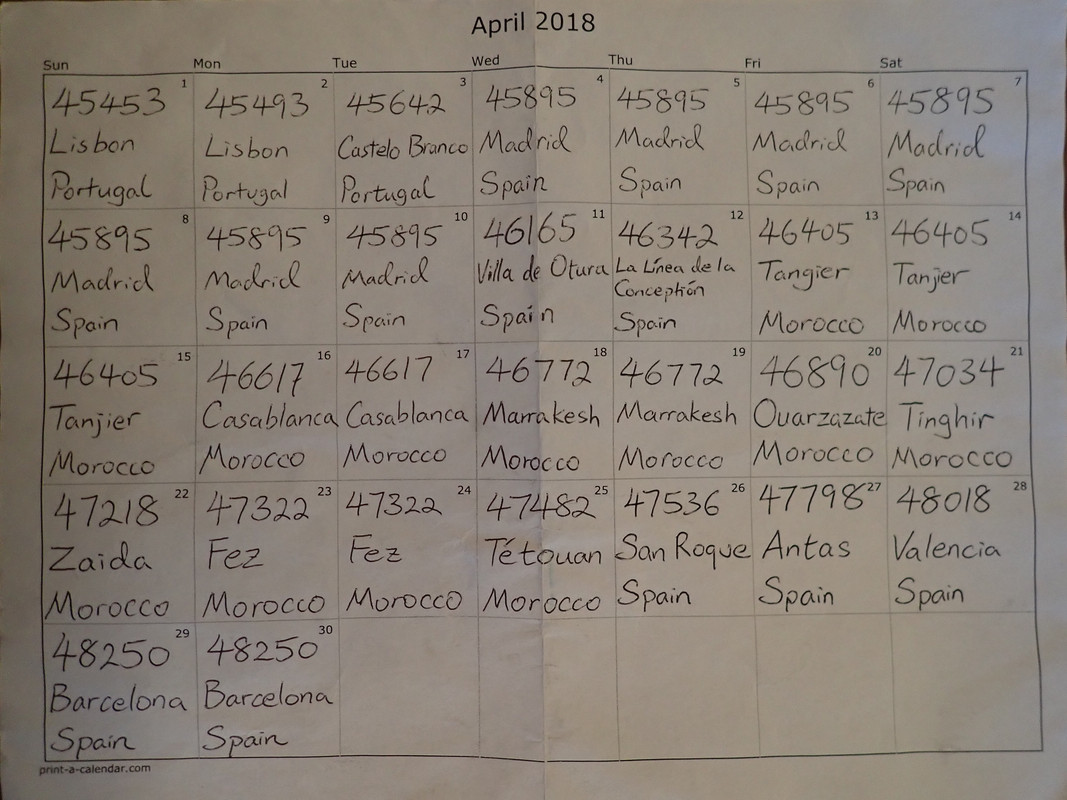 April 2018
Sun Mon Tue Wed Thu Fri Sat
45453 1 45493 2 45642 3 45895 4 45895 5 45895 6 45895 7
Lisbon Lisbon Castelo Branco Madrid Madrid Madrid Madrid
Portugal Portugal Portugal Spain Spain Spain Spain
45895 8 45895 9 45895 10 46165 11 46342 12 46405 13 46405 14
Madrid Madrid Madrid Villa de Otura La Línea de la Tangier Tanjier
Conception
Spain Spain Spain Spain Spain Morocco Morocco
46405 15 46617 16 46617 17 46772 18 46772 19 46890 20 47034 21
Tanjier Casablanca Casablanca Marrakesh Marrakesh Ouarzazate Tinghir
Morocco Morocco Morocco Morocco Morocco Morocco Morocco
47218 22 47322 23 47322 24 47482 25 47536 26 47798 27 48018 28
Zaida Fez Fez Tétouan San Roque Antas Valencia
Morocco Morocco Morocco Morocco Spain Spain Spain
48250 29 48250 30
Barcelona Barcelona
Spain Spain
print-a-calendar.com